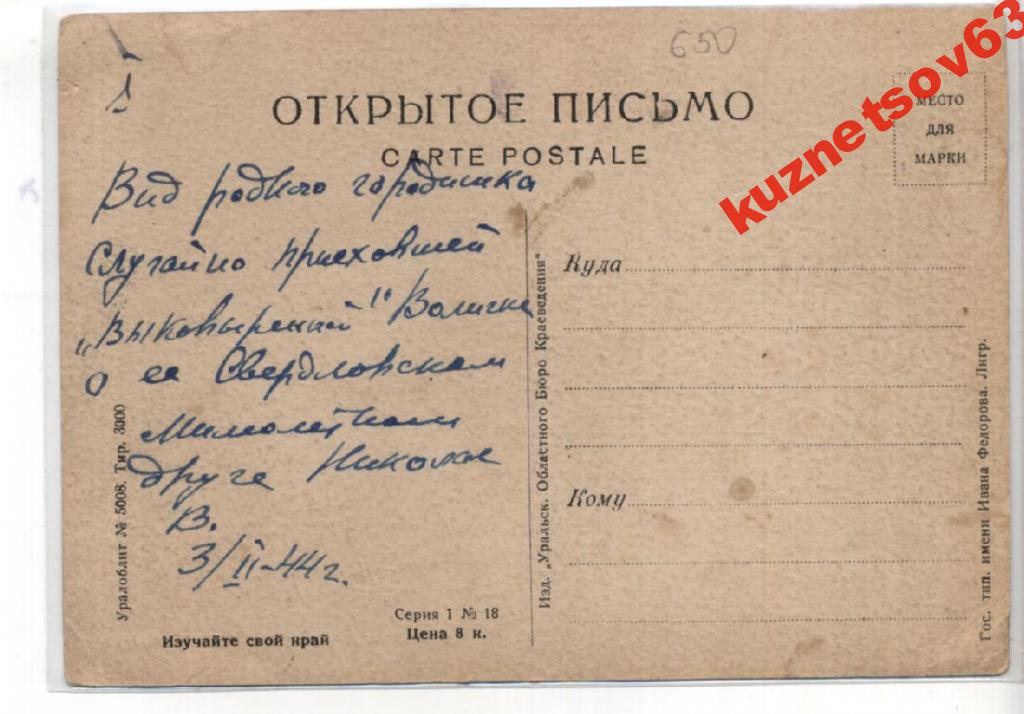 650
kuznetsov63
ОТКРЫТОЕ ПИСЬМО
CARTE POSTALE
МЕСТО
ДЛЯ
МАРКИ
Вид родного городишка
Случайно приехавшей
„Выковыренной" Волички
о ее Свердловском
Мимолетном
друге Николае
В.
3/II-44 г.
Уралоблит № 5008. Тир. 3000
Изучайте свой край
Серия 1 № 18
Цена 8 к.
Изд. „Уральск. Областного Бюро Краеведения"
Куда
Кому
Гос. тип. имени Ивана Федорова. Лнгр.